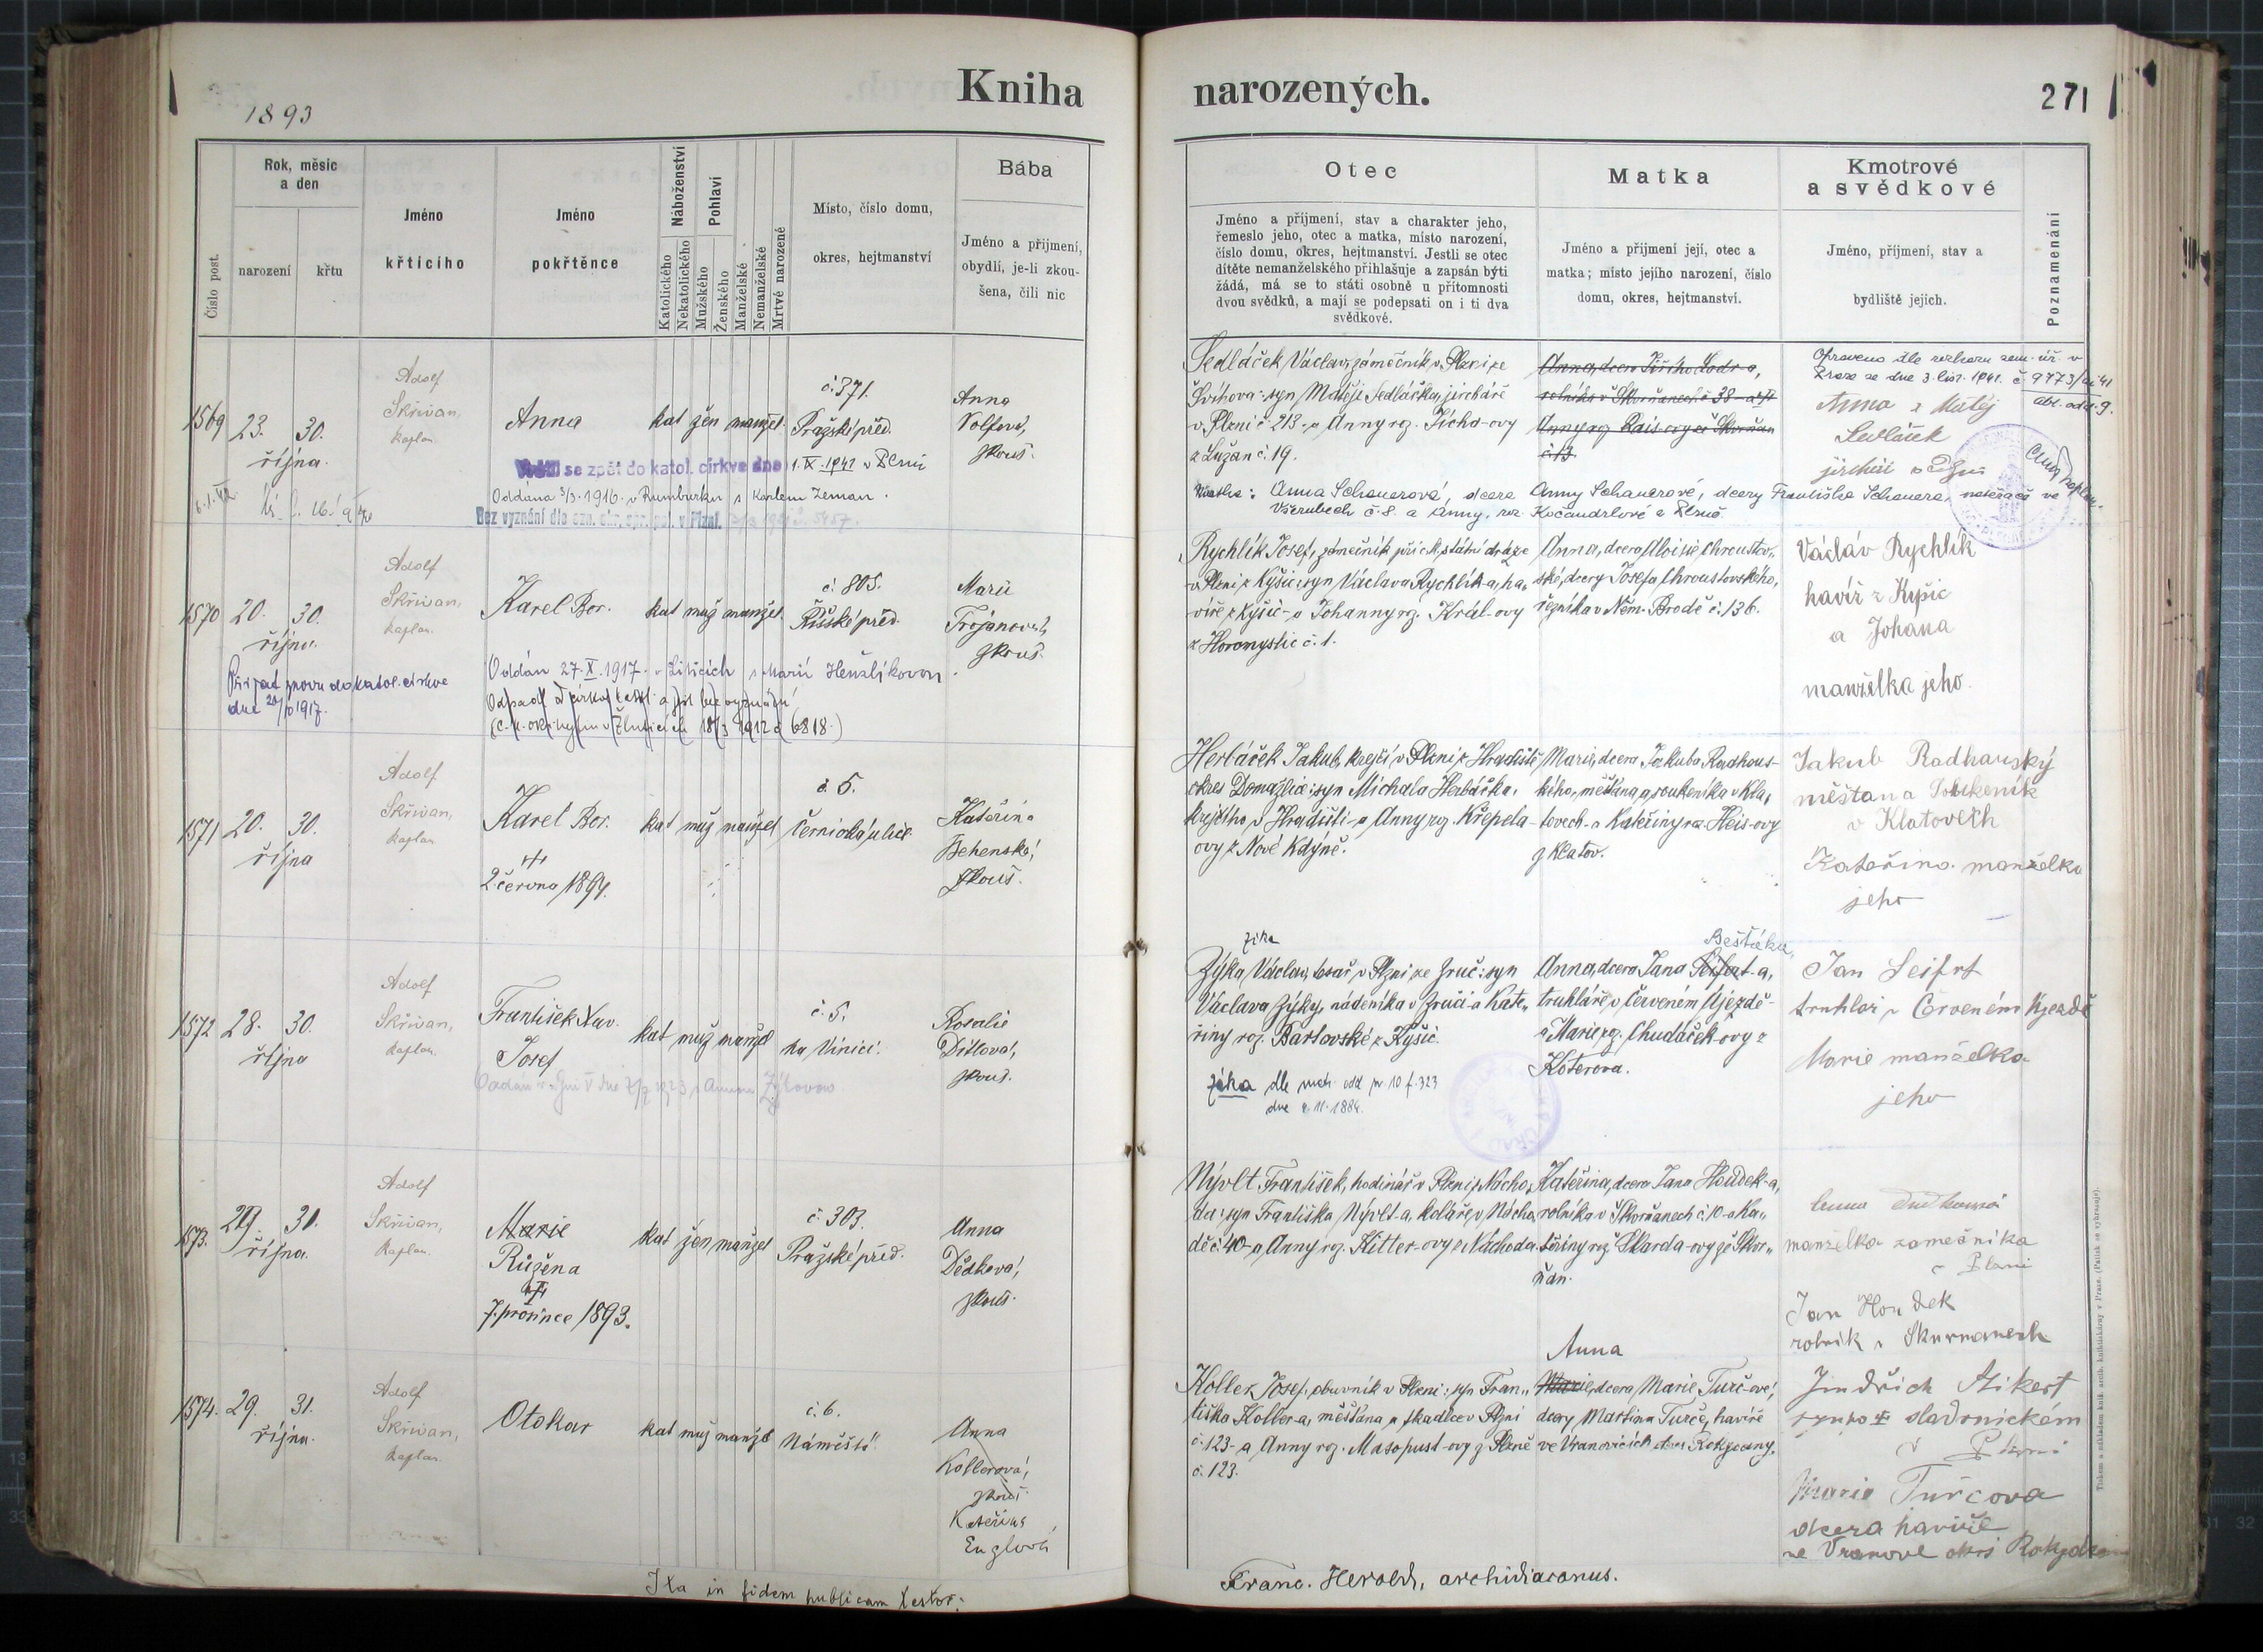 Kniha narozených.
1893
271
Číslo post.
Rok, měsíc
a den
narození
křtu
Jméno
křticího
Jméno
pokřtěnce
Náboženství
Katolického
Nekatolického
Pohlaví
Mužského
Ženského
Manželské
Nemanželské
Mrtvě narozené
Místo, číslo domu,
okres, hejtmanství
Bába
Jméno a přijmení,
obydlí, je-li zkou-
šena, čili nic
Otec
Jméno a příjmení, stav a charakter jeho,
řemeslo jeho, otec a matka, místo narození,
číslo domu, okres, hejtmanství. Jestli se otec
dítěte nemanželského přihlašuje a zapsán býti
žádá, má se to státi osobně u přítomnosti
dvou svědků, a mají se podepsati on i ti dva
svědkové.
Matka
Jméno a přijmení její, otec a
matka; místo jejího narození, číslo
domu, okres, hejtmanství.
Kmotrové
a svědkové
Jméno, přijmení, stav a
bydliště jejich.
Poznamenání
1569
23. 30.
října.
Adolf
Skřivan,
kaplan
Anna
kat žen manžel.
č. 371.
Pražské před.
Anna
Volfová,
zkouš.
se zpět do katol. církve dne 1. IX. 1941 v Plzni
Oddána 5/3. 1916. v Rumburku s Karlem Zeman.
Bez vyznání dle
Sedláček Václav, zámečník v Plzni ze
Švihova: syn Matěje Sedláčka, jircháře
v Plzni č. 213. a Anny roz. Tícha-ovy
z Lužan č. 19.
Anna, dcera Jiřího
rolníka v Skvrňanech č. 38 a
Anny roz. Rais-ovy ze Skvrňan
č. 13.
Matka: Anna Schauerová, dcera Anny Schauerové, dcery Františka Schauera, nateřače ve
Všerubech č. 8. a Anny, roz. Kočandrlové z Plzně.
Opraveno dle rozhodn. zem. úř. v
Praze ze dne 3. list. 1941. č. 9773/ai 41
odd. 9.
Anna a Matěj
Sedláček
jircháři v Plzni
1570
20. 30.
října.
Adolf
Skřivan,
kaplan.
Karel Bor.
kat muž manžel.
č. 805.
Říšské před.
Marie
Trojanová,
zkouš.
Přijat znovu do katol. církve
dne 20/10 1917.
Oddán 27. X. 1917. v Liticích s Marií Henzlíkovou.
Odpadl od církve kat. a jest bez vyznání
(c. k. okr. hejtm. v Žluticích 18/3 1912 č. 6818.)
Rychlík Josef, zámečník při c. k. státní dráze
v Plzni z Kyšic: syn Václava Rychlík-a, ha-
víře z Kyšic - a Johanny roz. Král-ovy
z Horomyslic č. 1.
Anna, dcera Aloisie Chroustov-
ské, dcery Josefa Chroustovského,
řezníka v Něm. Brodě č. 136.
Václav Rychlík
havíř z Kyšic
a Johana
manželka jeho.
1571
20. 30.
října
Adolf
Skřivan,
kaplan
Karel Bor.
2. června 1894.
kat muž manžel
č. 5.
Černická ulice.
Kateřina
Behenská,
zkouš.
Herbáček Jakub, krejčí v Plzni z Hradiště
okres Domažlice: syn Michala Herbáčka,
krejčího v Hradišti - a Anny roz. Křepela-
ovy z Nové Kdyně.
Marie, dcera Jakuba Radhous-
kého, měšťana a soukeníka v Kla-
tovech - a Kateřiny roz. Heis-ovy
z Klatov.
Jakub Radhauský
měštan a Soukeník
v Klatovech
Kateřina manželka
jeho
1572
28. 30.
října
Adolf
Skřivan,
kaplan.
František Xav.
Josef
kat muž manžel
č. 5.
na Vinici.
Rosalie
Ditlová,
zkouš.
Zíka
Zýka, Václav, tesař v Plzni ze Zruč: syn
Václava Zýky, nádeníka v Zruči a Kate-
řiny roz. Bartovské z Kyšic.
Zíka dle matr. odd. pr. 10 f. 323
dne 4. 11. 1884.
Beštáka,
Anna, dcera Jana Seifert-a,
truhláře v Červeném Újezdě -
a Marie roz. Chudáček-ovy z
Koterova.
Jan Seifrt
truhlař v Červeném Ujezdě
Marie manželka
jeho
1573.
29. 31.
října.
Adolf
Skřivan,
kaplan.
Marie
Růžena
7. prosince 1893.
kat žen manžel
č. 303.
Pražské před.
Anna
Dědková,
zkouš.
Nývlt František, hodinář v Plzni z Nácho-
da: syn Františka Nývlt-a, koláře v Nácho-
dě č. 40 - a Anny roz. Kitter-ovy z Náchoda.
Kateřina, dcera Jana Houdek-a,
rolníka v Skvrňanech č. 10 - a Ka-
teřiny roz. Skarda-ovy ze Skvr-
ňan.
manželka zamečníka
v Plzni
Jan Houdek
rolník v Skvrnanech
1574.
29. 31.
října.
Adolf
Skřivan,
kaplan.
Otokar
kat muž manžel
č. 6.
Náměstí.
Anna
Kollerová,
zkouš.
Kateřina
Englová
Koller Josef, obuvník v Plzni: syn Fran-
tiška Koller-a, měšťana a tkadlce v Plzni
č. 123 - a Anny roz. Masopust-ovy z Plzně
č. 123.
Anna
Marie, dcera Marie Turč-ové,
dcery Martina Turče, havíře
ve Vranovicích okres Rokycany.
Jindřich Aikert
v Plzni
Marie Turčova
dcera havíře
ve Vranově okrs Rokycan
Ita in fidem publicam testor:
Franc. Herold, archidiaconus.